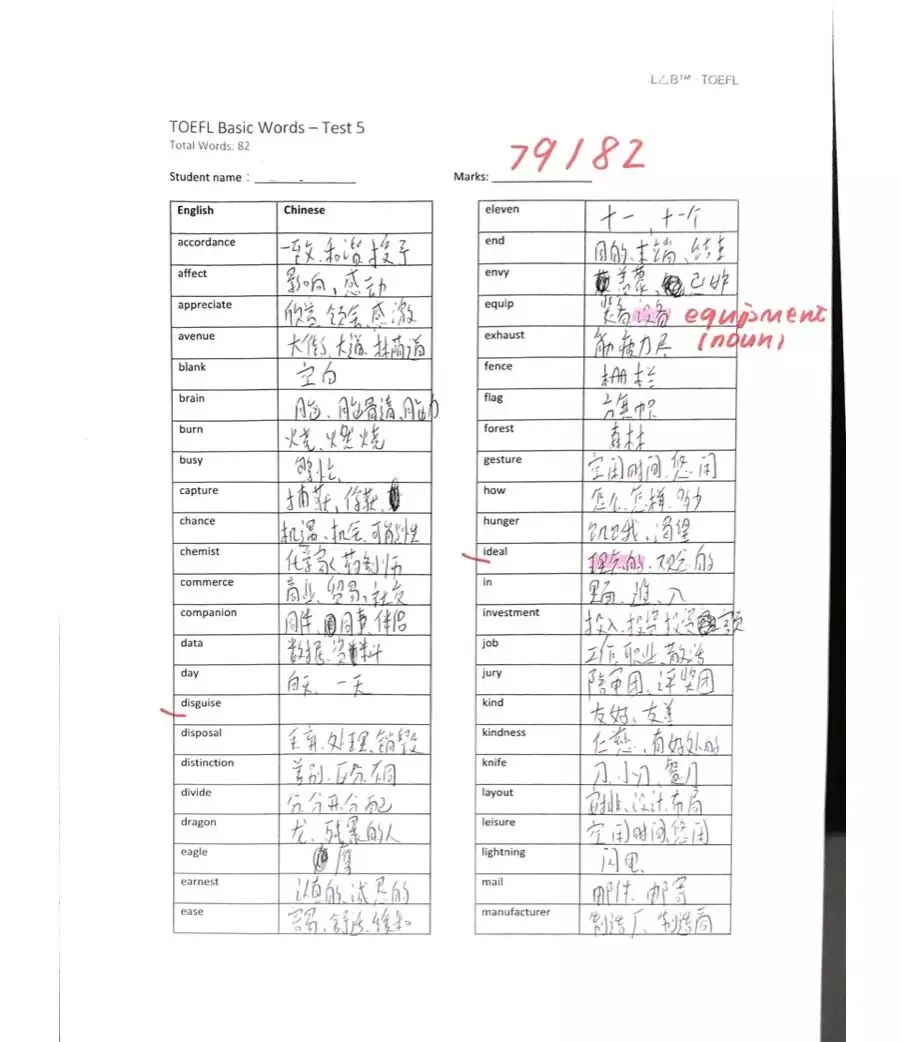 L△B™ TOEFL
TOEFL Basic Words – Test 5
Total Words: 82
79/82
Student name :
Marks:
English Chinese
accordance 一致、和谐 授予
affect 影响,感动
appreciate 欣赏 领会 感激
avenue 大街、大道、林荫道
blank 空白
brain 脑、脑
burn 烧、燃烧
busy 繁忙
capture 捕获、俘获
chance 机遇、机会、可能性
chemist 化学家
commerce 商业、贸易、社交
companion 同伴、同事、伴侣
data 数据、资料
day 白天、一天
disguise
disposal 丢弃、处理、销毁
distinction 差别、区分、不同
divide 分 分开 分配
dragon 龙、残暴的人
eagle 鹰
earnest 认真的、
ease 容易、舒适、缓和
eleven 十一、十一个
end 目的、末端、结束
envy 羡慕、
equip 装备 设备 equipment
(noun)
exhaust 疲力尽
fence 栅栏
flag 旗帜
forest 森林
gesture 空闲时间、悠闲
how 怎么、怎样、多少
hunger 饥饿、渴望
ideal 理想的、观念的
in 里面、进、入
investment 投入、投资 投资额
job 工作、职业、
jury 陪审团、评奖团
kind 友好、友善
kindness 仁慈、有好处的
knife 刀、小刀、
layout 安排、设计、布局
leisure 空闲时间、悠闲
lightning 闪电
mail 邮件、邮寄
manufacturer 制造厂、制造商